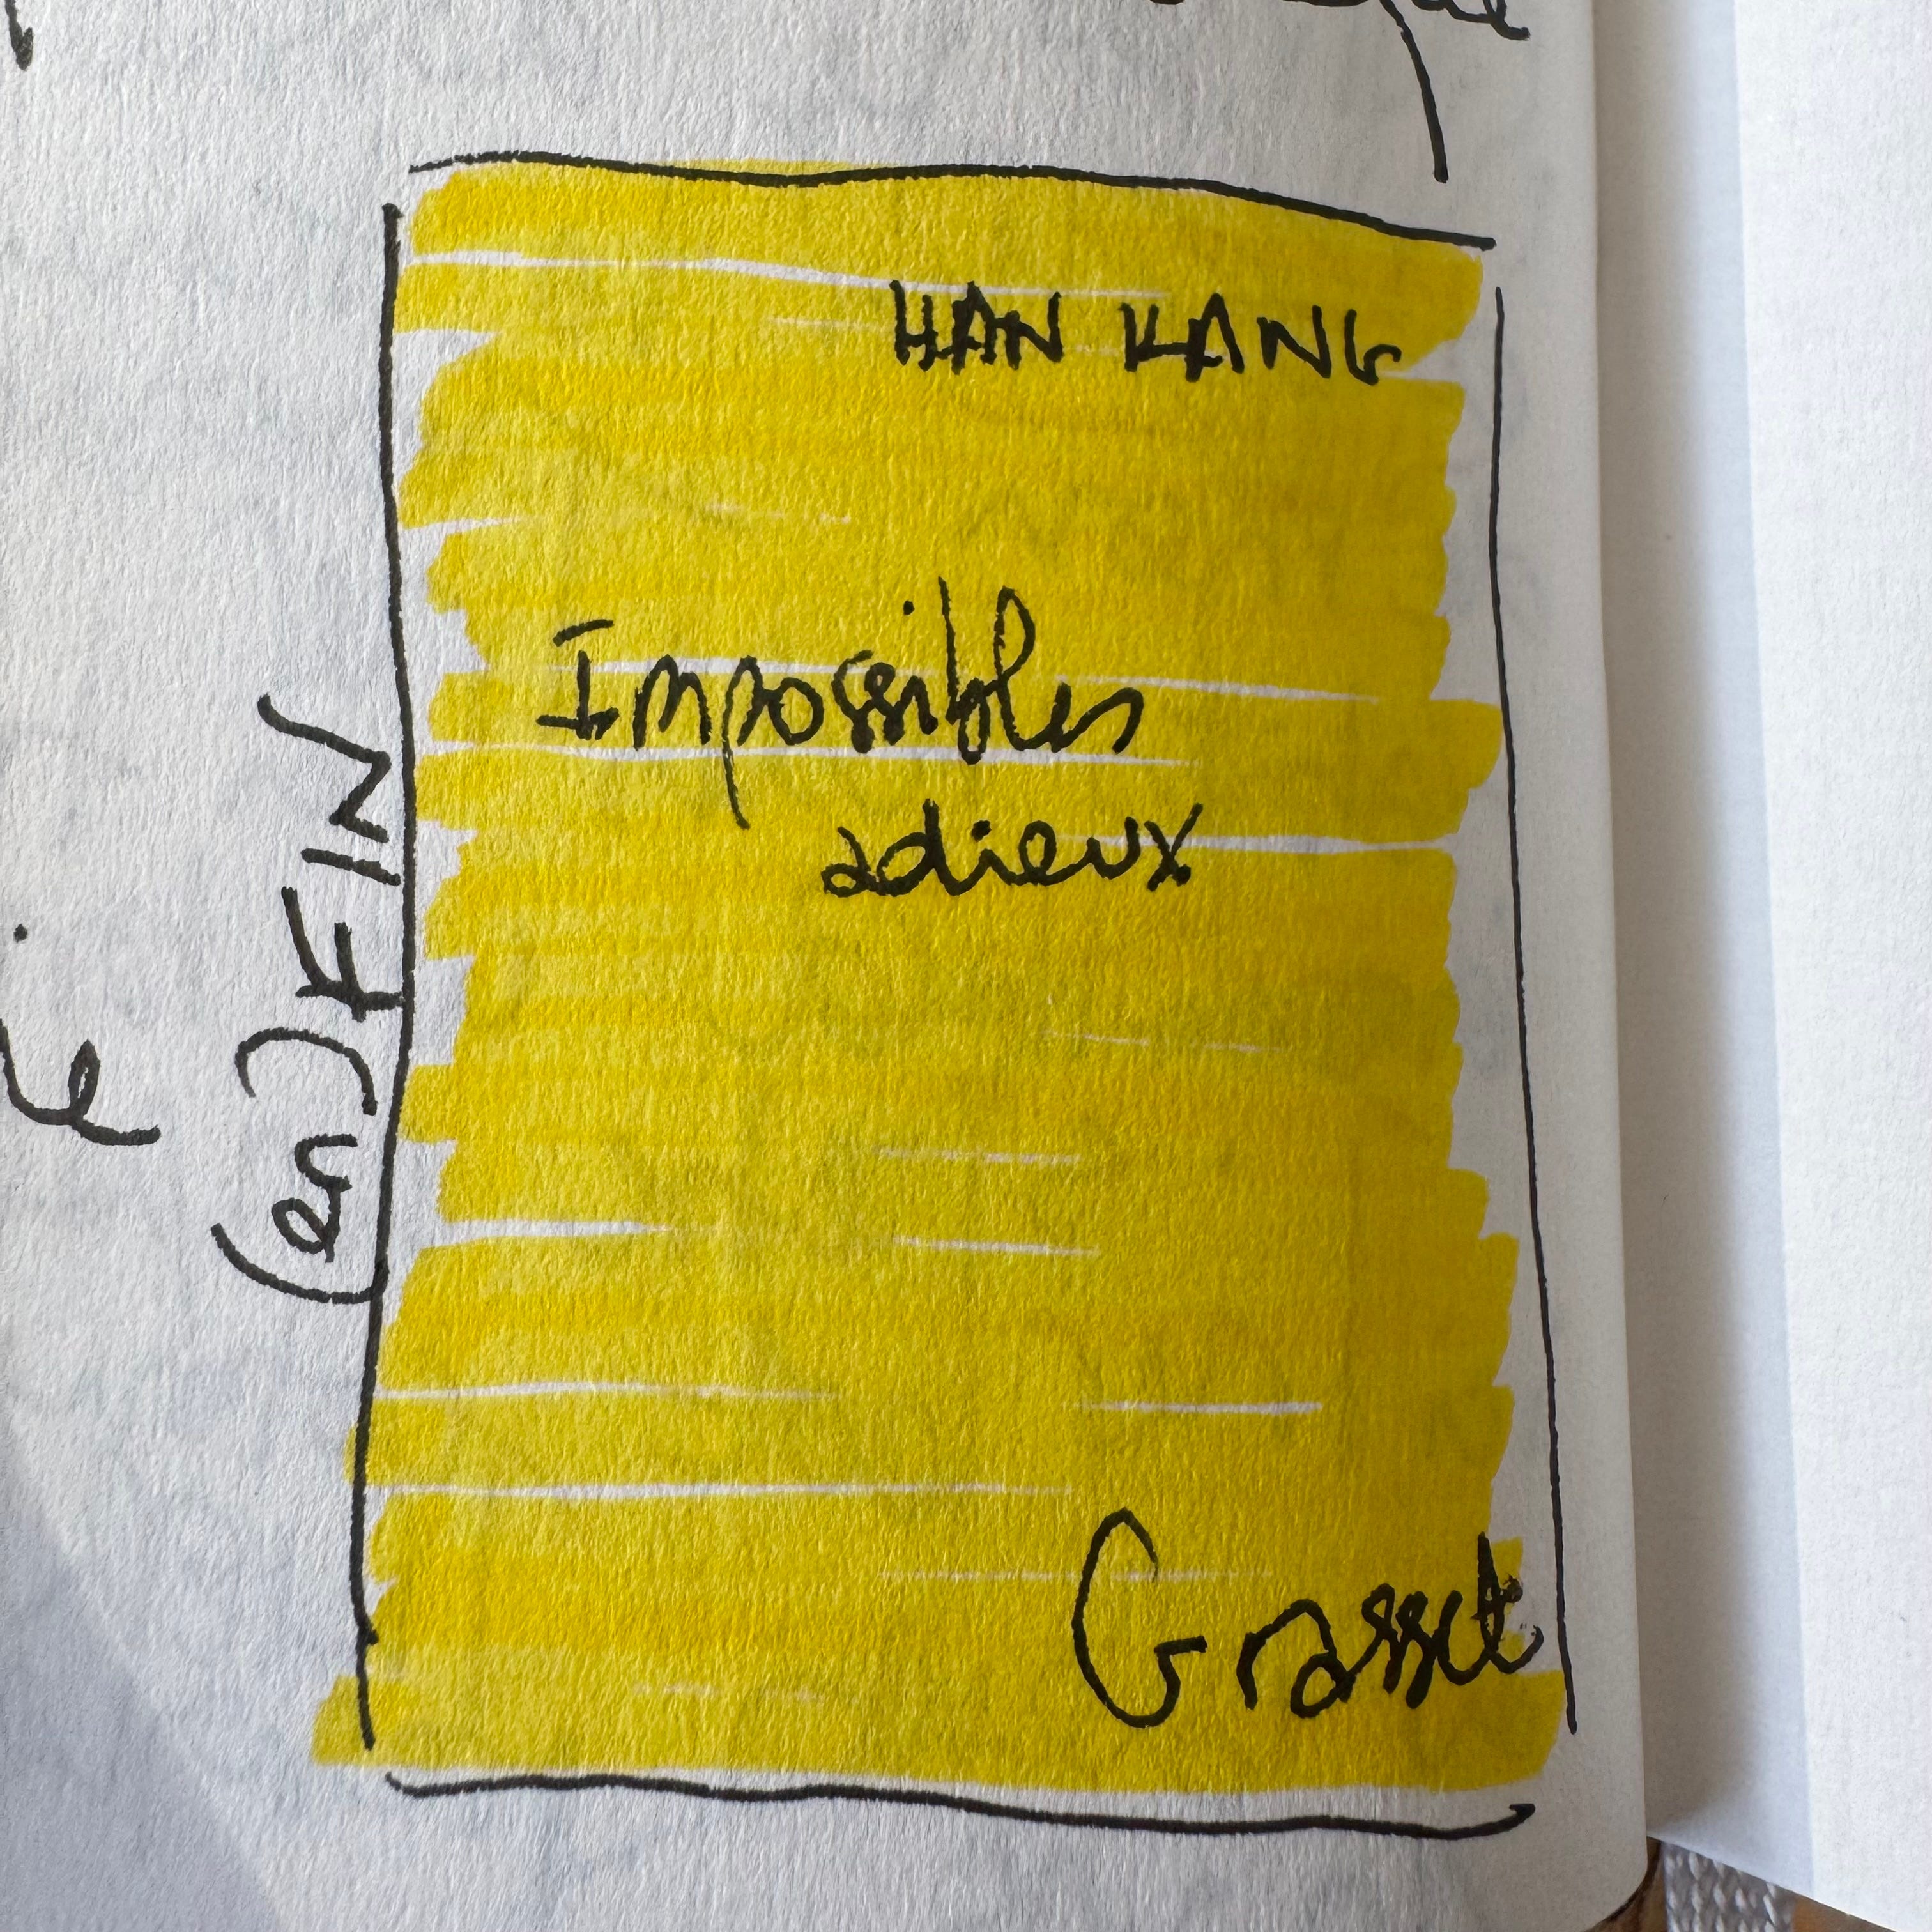 HAN KANG
Impossibles
adieux
(en) FIN
Grasset